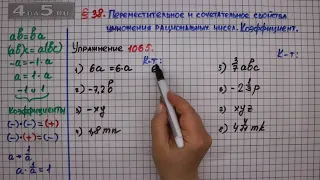 4 DA 5 .RU
§ 38. Переместительное и сочетательное свойства
умножения рациональных чисел. Коэффициент.
ab=ba
(ab)c=a(bc)
-a=-1·a
a=1·a
-1 и 1
Коэффициенты
(-)·(-)=(+)
(-)·(+)=(-)
a·1/a=1
Упражнение 1065.
К-т:
К-т:
1) 6a=6·a
2) -7,2b
3) -xy
4) 1,8mn
5) 3/7abc
6)
7) xyz
8)